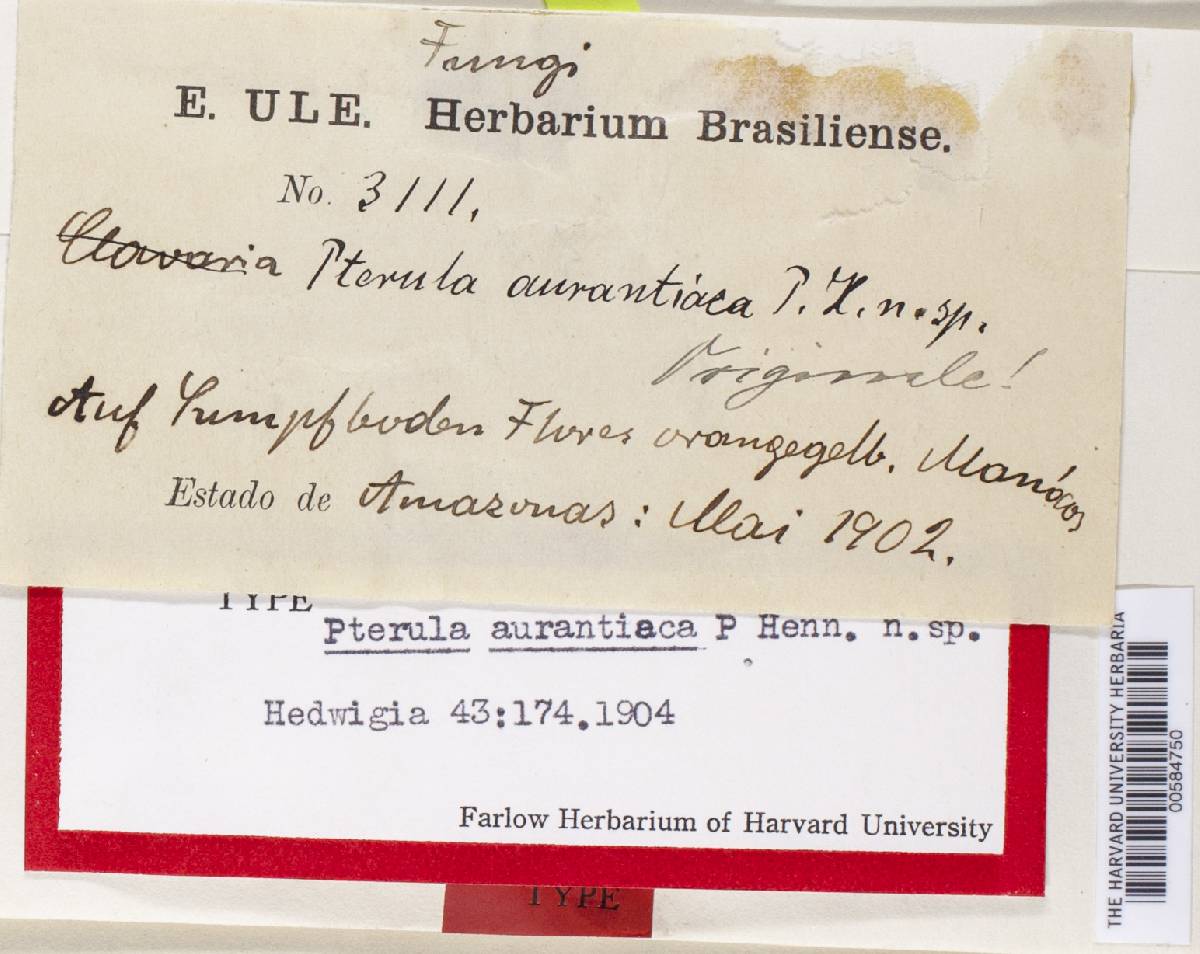 Fungi
E. ULE. Herbarium Brasiliense.
No. 3111.
Clavaria Pterula aurantiaca P. H. n. sp.
Originale!
Auf Sumpfboden Flores orangegelb. Manáos
Estado de Amazonas: Mai 1902.
TYPE
Pterula aurantiaca P Henn. n. sp.
Hedwigia 43:174.1904
Farlow Herbarium of Harvard University
TYPE
THE HARVARD UNIVERSITY HERBARIA
00584750